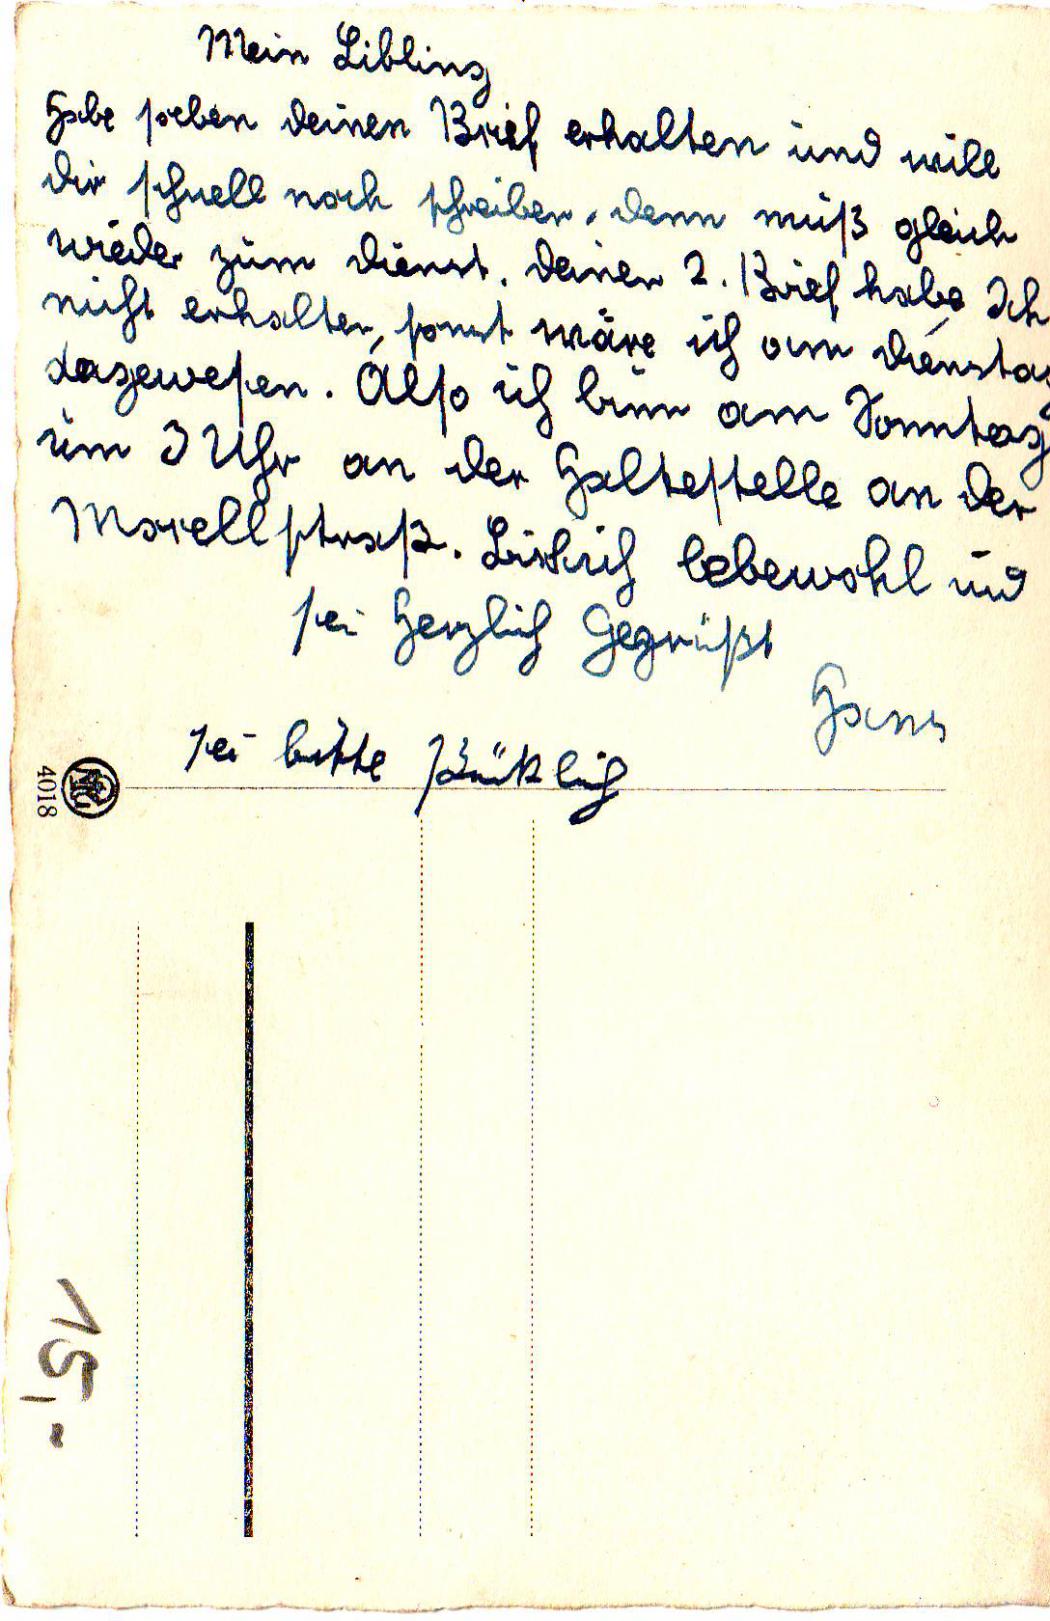 Mein Libling
Habe soeben deinen Brief erhalten und will
dir schnell noch schreiben, denn muß gleich
wieder zum dienst. deinen 2. Brief habe Ich
nicht erhalten, sonst wäre ich am dienstag
dagewesen. Also ich binn am Sonntag
um 3 Uhr an der Haltestelle an der
Morellstraß. lebewohl und
sei Herzlich Gegrüßt
Hans
sei bitte
4018
15,-